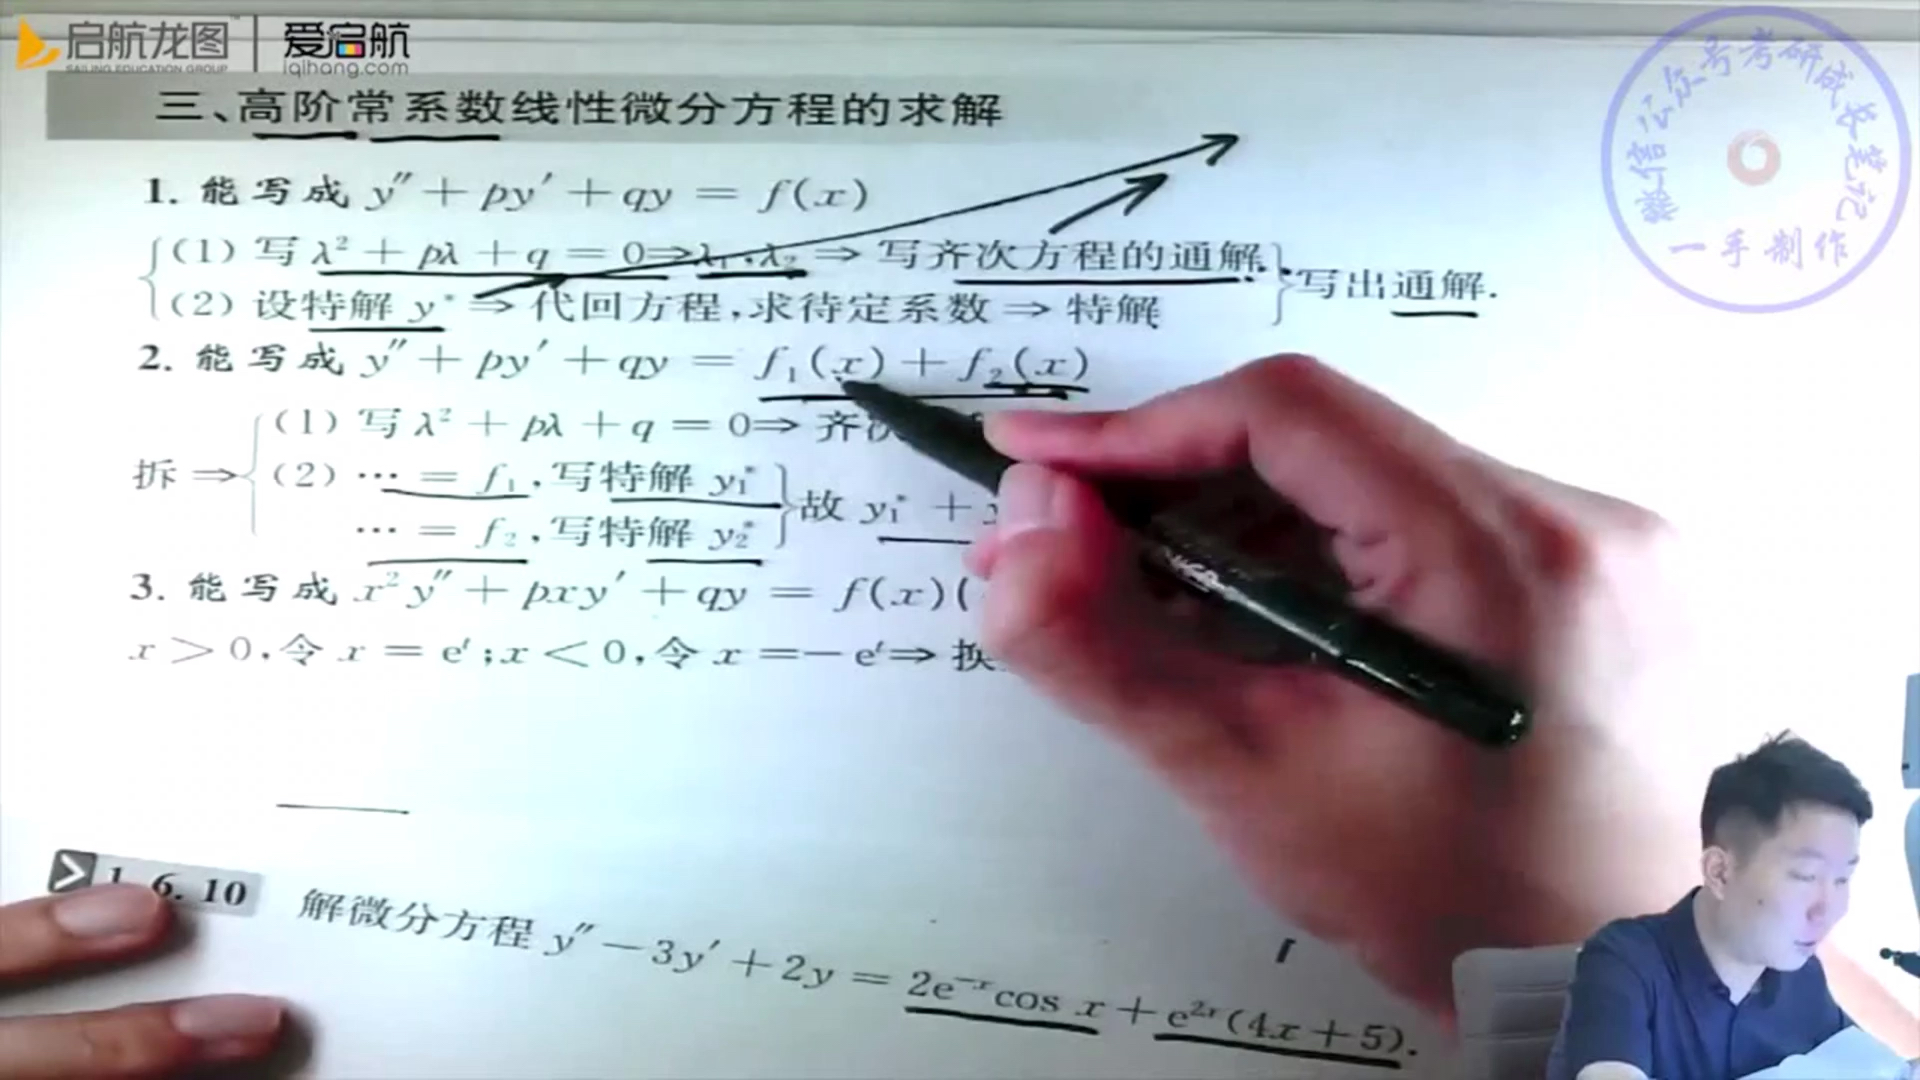 启航龙图 爱启航
SAILING EDUCATION GROUP iqihang.com
微信公众号考研成长笔记
一手制作
三、高阶常系数线性微分方程的求解
1. 能写成 y″ + py′ + qy = f(x)
(1) 写 λ² + pλ + q = 0⇒λ₁,λ₂ ⇒ 写齐次方程的通解
(2) 设特解 y* ⇒ 代回方程,求待定系数 ⇒ 特解
写出通解.
2. 能写成 y″ + py′ + qy = f₁(x) + f₂(x)
拆 ⇒
(1) 写 λ² + pλ + q = 0⇒ 齐次
(2) … = f₁,写特解 y₁*
… = f₂,写特解 y₂*
故 y₁* +
3. 能写成 x²y″ + pxy′ + qy = f(x)(
x > 0,令 x = eᵗ;x < 0,令 x =− eᵗ⇒ 换
1.6.10 解微分方程 y″ − 3y′ + 2y = 2e⁻ˣcos x + e²ˣ(4x + 5).